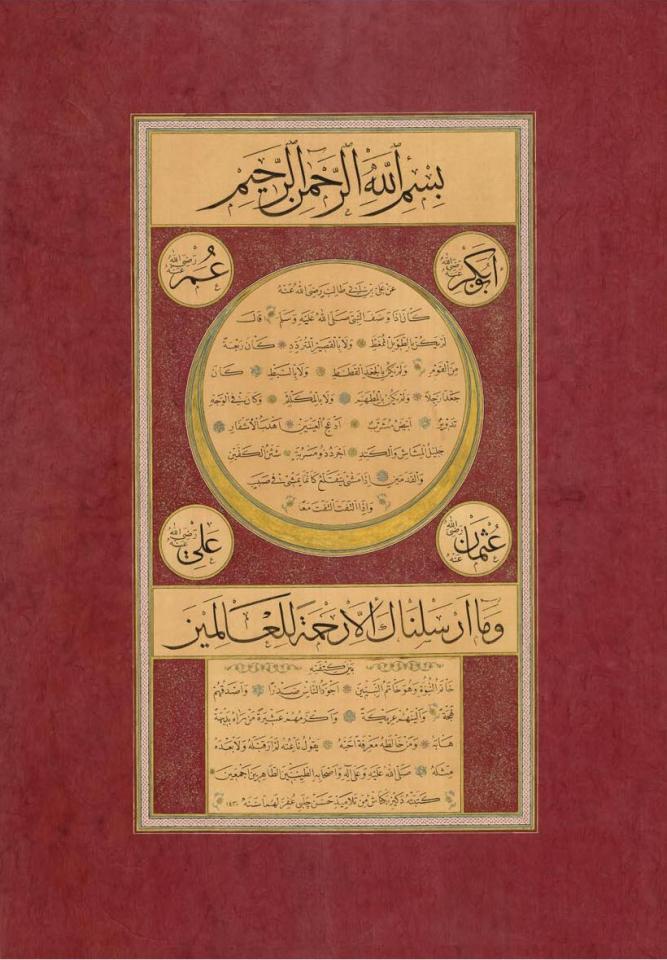 بِسْمِ اللّٰهِ الرَّحْمٰنِ الرَّحِيمِ
اَبُوبَكْر رَضِيَ اللّٰهُ عَنْهُ
عُمَر رَضِيَ اللّٰهُ عَنْهُ
عَنْ عَلِيِّ بْنِ اَبِي طَالِبٍ رَضِيَ اللّٰهُ عَنْهُ
كَانَ اِذَا وَصَفَ النَّبِيَّ صَلَّى اللّٰهُ عَلَيْهِ وَسَلَّمَ قَالَ
لَمْ يَكُنْ بِالطَّوِيلِ الْمُمَّغِطِ وَلَا بِالْقَصِيرِ الْمُتَرَدِّدِ كَانَ رَبْعَةً
مِنَ الْقَوْمِ وَلَمْ يَكُنْ بِالْجَعْدِ الْقَطَطِ وَلَا بِالسَّبْطِ كَانَ
جَعْدًا رَجِلًا وَلَمْ يَكُنْ بِالْمُطَهَّمِ وَلَا بِالْمُكَلْثَمِ وَكَانَ فِي الْوَجْهِ
تَدْوِيرٌ اَبْيَضُ مُشْرَبٌ اَدْعَجُ الْعَيْنَيْنِ اَهْدَبُ الْاَشْفَارِ
جَلِيلُ الْمُشَاشِ وَالْكَتَدِ اَجْرَدُ ذُو مَسْرُبَةٍ شَثْنُ الْكَفَّيْنِ
وَالْقَدَمَيْنِ اِذَا مَشَى يَتَقَلَّعُ كَاَنَّمَا يَمْشِي فِي صَبَبٍ
وَاِذَا الْتَفَتَ الْتَفَتَ مَعًا
عُثْمَان رَضِيَ اللّٰهُ عَنْهُ
عَلِي رَضِيَ اللّٰهُ عَنْهُ
وَمَا اَرْسَلْنَاكَ اِلَّا رَحْمَةً لِلْعَالَمِينَ
بَيْنَ كَتِفَيْهِ
خَاتَمُ النُّبُوَّةِ وَهُوَ خَاتَمُ النَّبِيِّينَ اَجْوَدُ النَّاسِ صَدْرًا وَاَصْدَقُهُمْ
لَهْجَةً وَاَلْيَنُهُمْ عَرِيكَةً وَاَكْرَمُهُمْ عَشِيرَةً مَنْ رَاٰهُ بَدِيهَةً
هَابَهُ وَمَنْ خَالَطَهُ مَعْرِفَةً اَحَبَّهُ يَقُولُ نَاعِتُهُ لَمْ اَرَ قَبْلَهُ وَلَا بَعْدَهُ
مِثْلَهُ صَلَّى اللّٰهُ عَلَيْهِ وَعَلَى اٰلِهِ وَاَصْحَابِهِ الطَّيِّبِينَ الطَّاهِرِينَ اَجْمَعِينَ
كَتَبَتْهُ مِنْ تَلَامِيذِ حَسَنْ چَلَبِي غُفِرَ لَهُمَا سَنَةَ ١٤٣٠